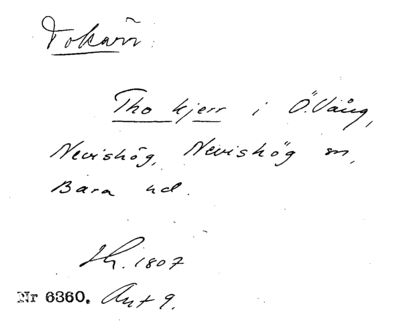 Tokärr:
Tho kjerr i Ö. Vång,
Nevishög, Nevishög sn,
Bara hd.
Sh. 1807
Nr 6360. Ant 9.